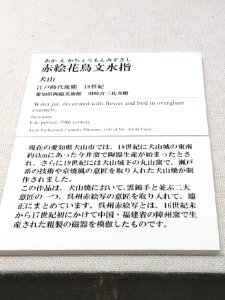 あかえかちょうもんみずさし
赤絵花鳥文水指
犬山
江戸時代後期　19世紀
愛知県陶磁美術館　川崎音三氏寄贈
Water jar, decorated with flower and bird in overglaze
enamels.
Inuyama
Edo period, 19th century
Aichi Prefectural Ceramic Museum, Gift of Mr.
現在の愛知県犬山市では、18世紀に犬山城の東南
約4kmにあった今井窯で陶器生産が始まったとさ
れ、さらに19世紀には犬山城下の丸山窯で、瀬戸
系の技術や京焼風の意匠を取り入れた犬山焼が制
作されました。
この作品は、犬山焼において、雲錦手と並ぶ二大
意匠の一つ、呉州赤絵写の意匠を取り入れて、端
正にまとめています。呉州赤絵写とは、16世紀末
から17世紀初にかけて中国・福建省の漳州窯で生
産された粗製の磁器を模倣したものです。